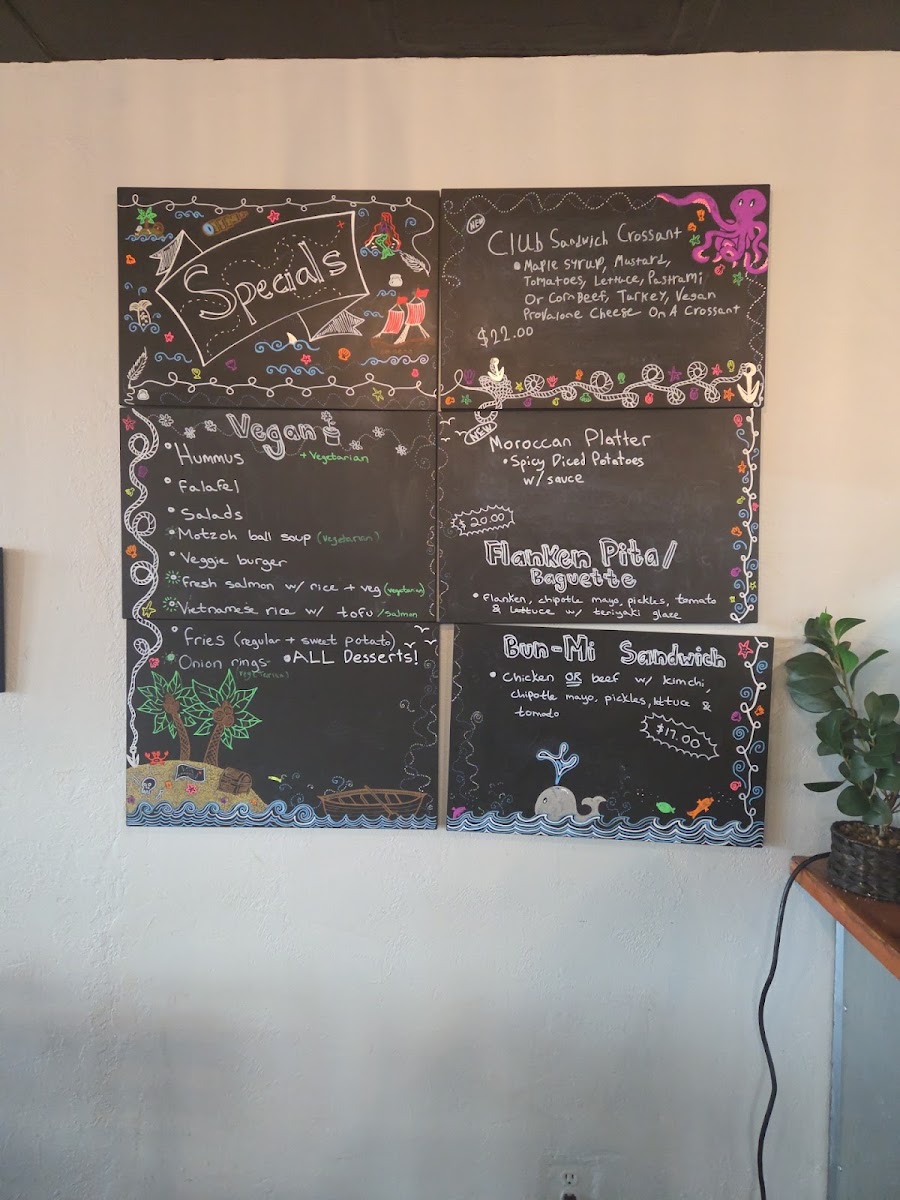 Specials
NEW
Club Sandwich Crossant
• Maple syrup, Mustard,
Tomatoes, Lettuce, Pastrami
Or Corn Beef, Turkey, Vegan
Provalone Cheese On A Crossant
$22.00
Vegan
+ Vegetarian
• Hummus
• Falafel
• Salads
• Motzoh ball soup (Vegetarian)
• Veggie burger
• Fresh salmon w/ rice + veg (vegetarian)
• Vietnamese rice w/ tofu /Salmon
• Fries (regular + sweet potato)
• Onion rings • ALL Desserts!
Vegetarian)
NEW
Moroccan Platter
• Spicy Diced Potatoes
w/ sauce
$20.00
Flanken Pita/
Baguette
• flanken, chipotle mayo, pickles, tomato
& lettuce w/ teriyaki glaze
Bun-Mi Sandwich
• Chicken OR beef w/ kimchi,
chipotle mayo, pickles, lettuce &
tomado
$17.00